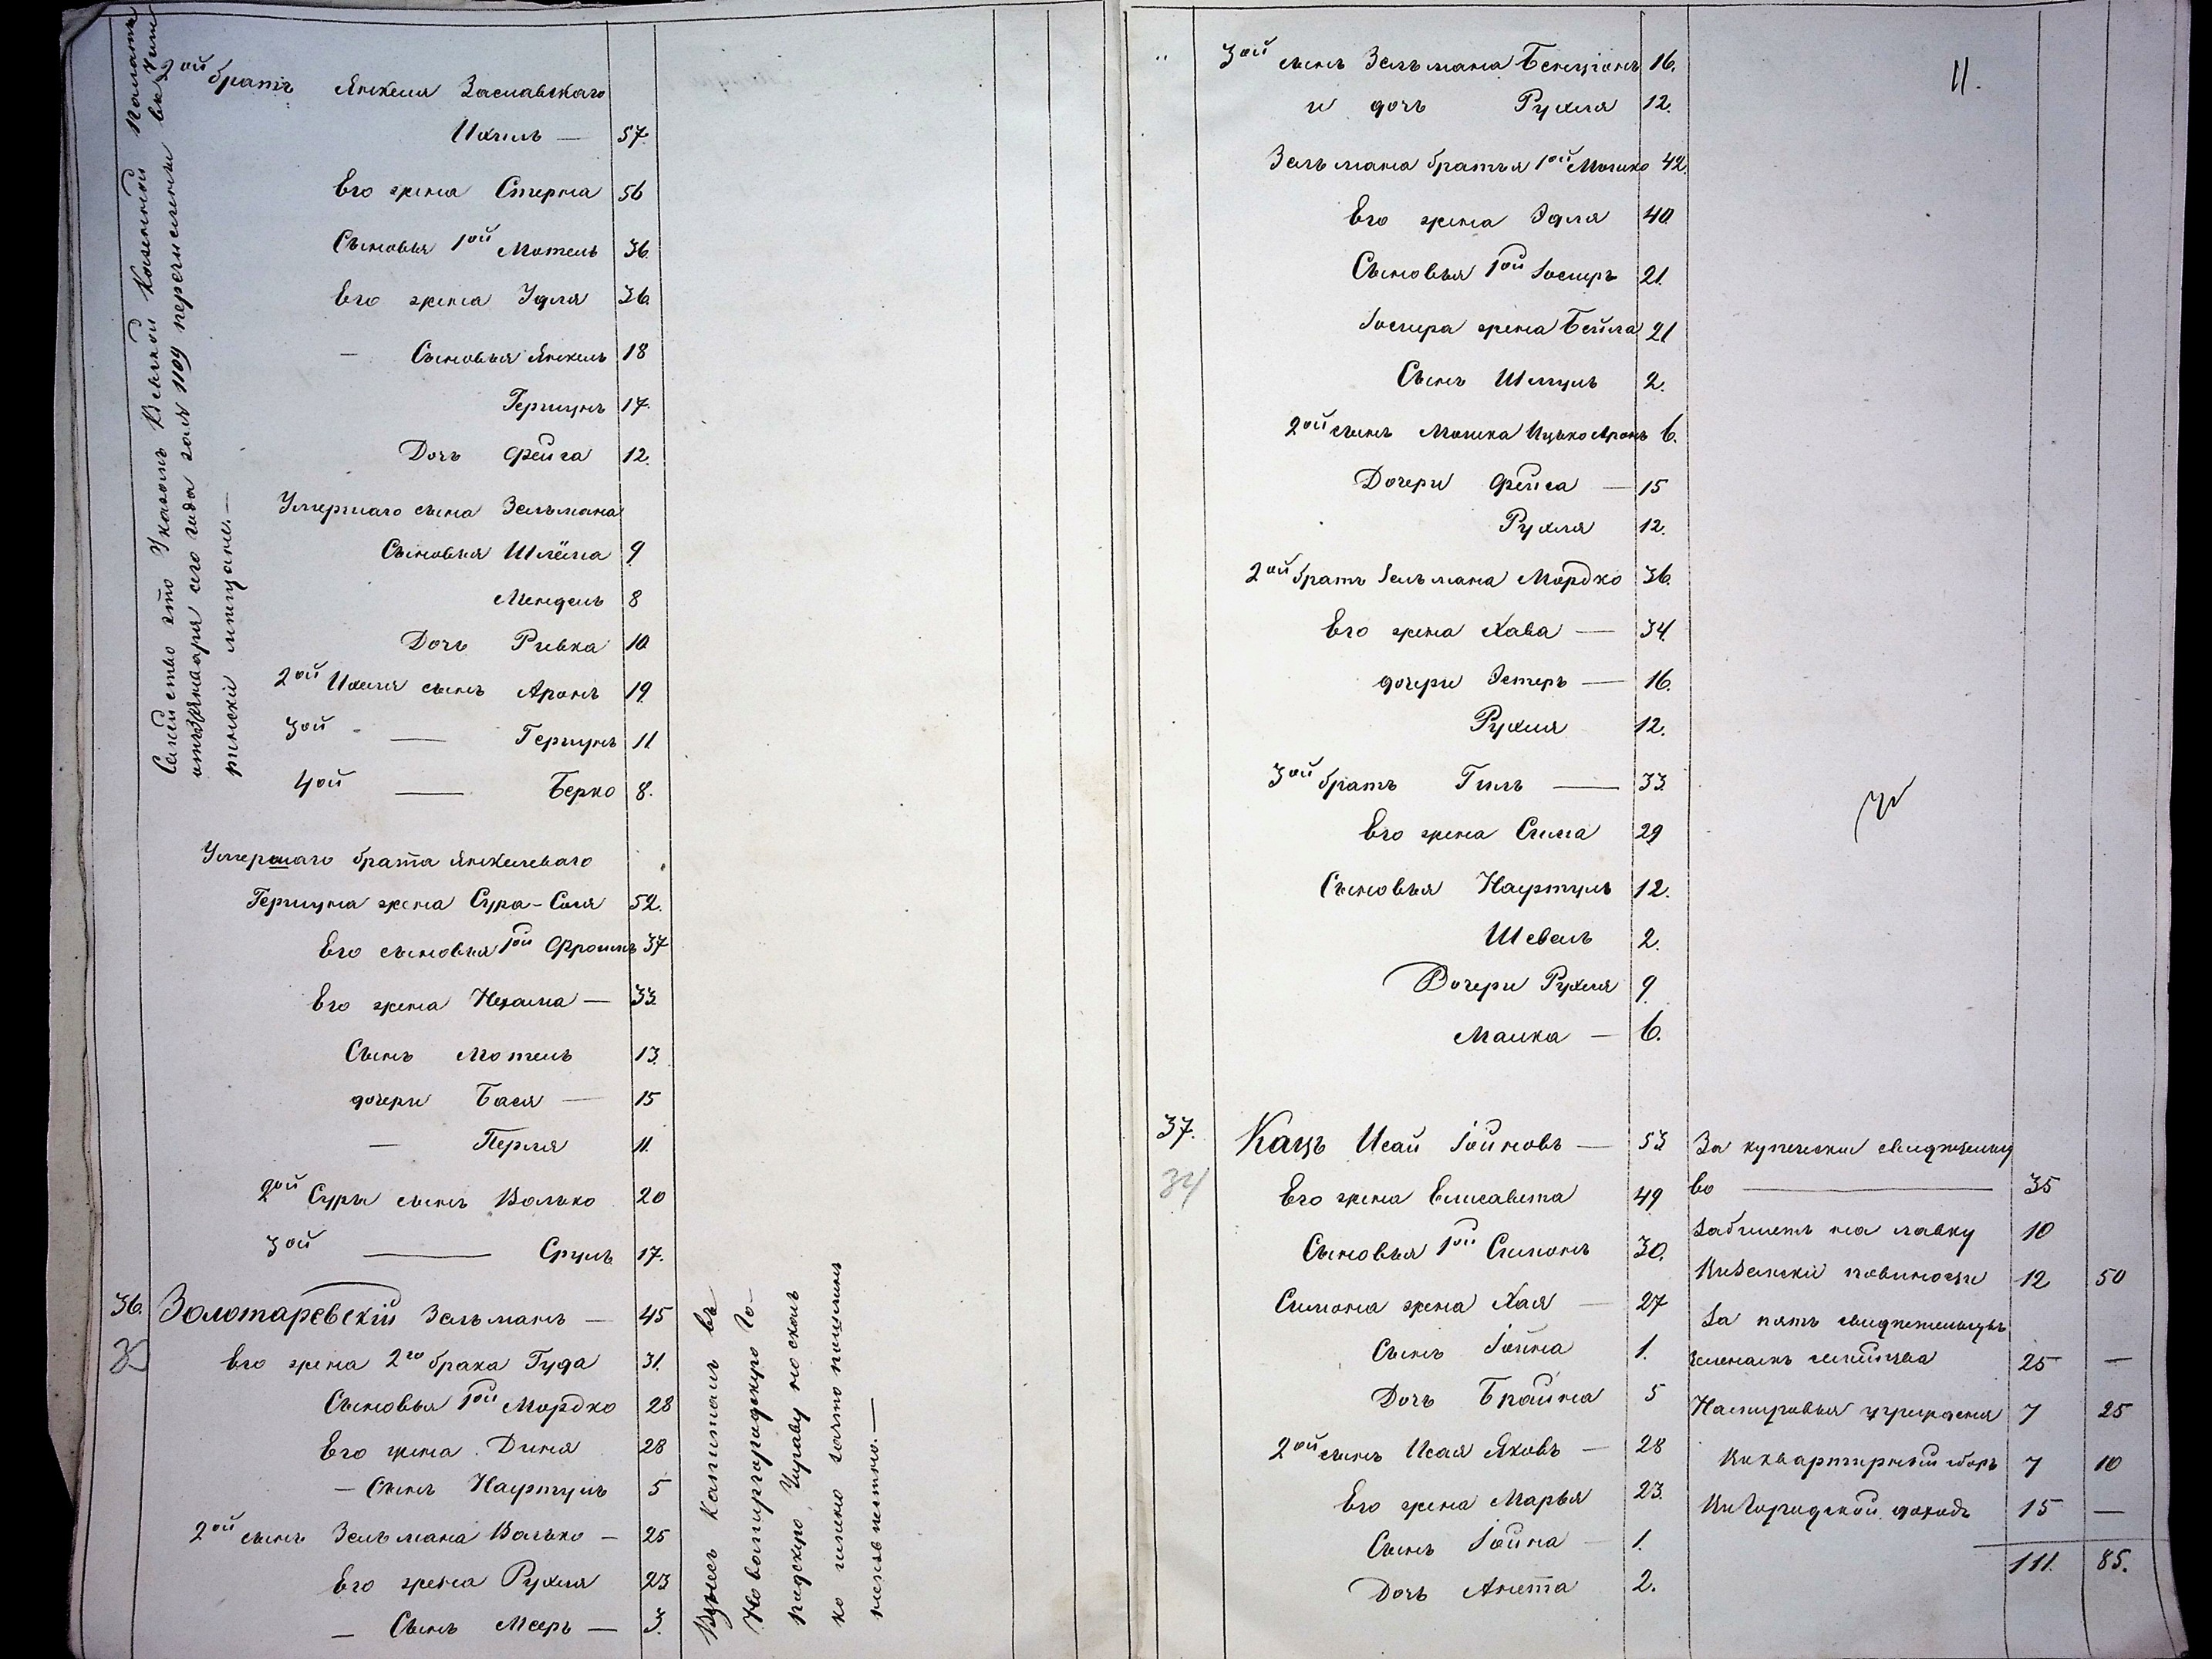 Семейство это Указомъ Казенной Палаты
сего года за № 1109 перечислены въ
мещане.—
2ой братъ Янкеля Заславскаго
Ихиль — 57.
Его жена Стерна 56
Сыновья 1ой Мотель 36.
Его жена Удля 36.
— Сыновья Янкель 18
Гершунъ 17.
Дочь Фейга 12.
Умершаго сына Зельмана
Сыновья Шлёма 9
Мендель 8
Дочь Ривка 10
2ой Ихеля сынъ Аронъ 19
3ой — Гершунъ 11.
4ой — Берко 8.
Умершаго брата Янкелеваго
Гершуна жена Сура-Сося 52.
Его сыновья 1ой Фроимъ 37
Его жена Нехама — 33.
Сынъ Мотель 13.
дочери Бася — 15
— Перля 11.
2ой Суры сынъ Волько 20
3ой — Сруль 17.
36. Золотаревскій Зельманъ — 45
32 Его жена 2го брака Гуда 31.
Сыновья 1ой Мордко 28
Его жена Диня 28
— Сынъ Нафтуль 5
2ой сынъ Зельмана Волько — 25
Его жена Рухля 23
— Сынъ Мееръ — 3.
Взнесъ Капиталъ въ
Новомиргородскую Го-
родскую Управу но сколь
ко именно за что пошлинъ
неизвестно.—
11.
" 3ой сынъ Зельмана Бенціонъ 16.
и дочь Рухля 12.
Зельмана братья 1ой Мошко 42.
Его жена Эдля 40.
Сыновья 1ой Іосиръ 21.
Іосира жена Бейла 21
Сынъ Шмуль 2.
2ой сынъ Мошка Ицько Аронъ 6.
Дочери Фейга — 15
Рухля 12.
2ой братъ Зельмана Мордко 36.
Его жена Хава — 34.
дочери Эстеръ — 16.
Рухля 12.
3ой братъ Гиль — 33.
Его жена Сима 29
Сыновья Нафтуль 12.
Шевель 2.
Дочери Рухля 9
Малка — 6.
37. Кацъ Исай Іойновъ — 53 За купеческое свидетельст
34 во — 35
Его жена Елисавета 49
Сыновья 1ой Симонъ 30. За билетъ на лавку 10
Симона жена Хая — 27 повиности 12 50
Сынъ Іойна 1. За пять свидетельствъ
членамъ семейства 25 —
Дочь Брайна 5
2ой сынъ Исая Яковъ — 28 7 25
Его жена Марья 23. квартирный сборъ 7 10
Сынъ Іойна — 1. Городской доходъ 15 —
Дочь Анета 2. 111. 85.